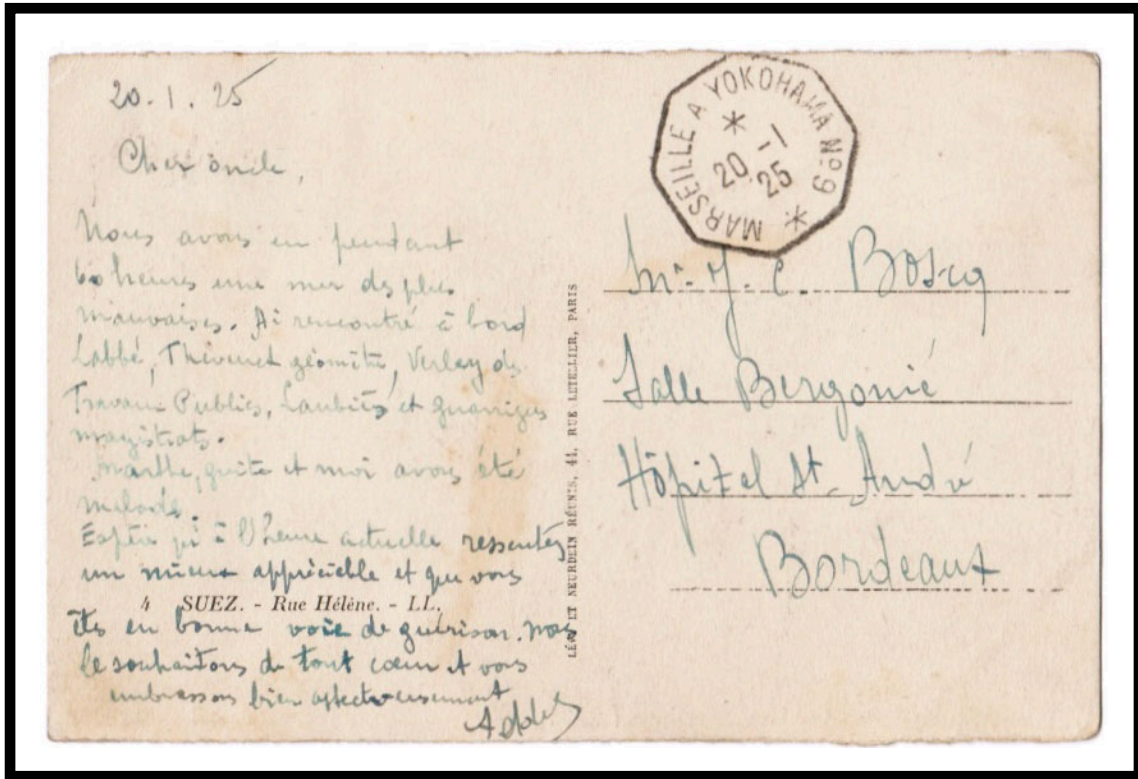 20.1.25
Cher oncle,
Nous avons eu pendant
60 heures une mer des plus
mauvaises. Ai rencontré à bord
Labbé, Thévenet géomètre, Verlay des
Travaux Publics, et
magistrats.
Marthe, guite et moi avons été
malade.
Espère qu'à l'heure actuelle ressentez
un mieux appréciable et que vous
4 SUEZ. - Rue Hélène. - LL.
êtes en bonne voie de guérison. Nous
le souhaitons de tout cœur et vous
embrassons bien affectueusement
LÉVY ET NEURDEIN RÉUNIS, 44, RUE LETELLIER, PARIS
MARSEILLE A YOKOHAMA Nº9
20 -1
25
Mr. J. C. Boscq
Salle Bergonié
Hôpital St. André
Bordeaux